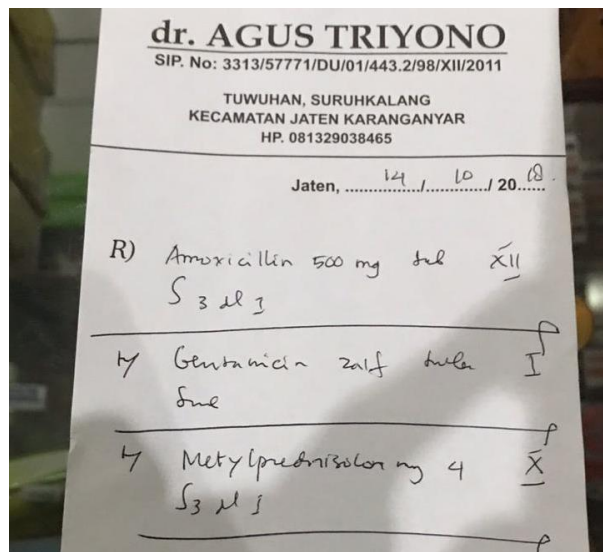 dr. AGUS TRIYONO
SIP. No: 3313/57771/DU/01/443.2/98/XII/2011
TUWUHAN, SURUHKALANG
KECAMATAN JATEN KARANGANYAR
HP. 081329038465
Jaten, 14 / 10 / 20 18
R) Amoxicillin 500 mg tab XII
S 3 dd 1
Gentamicin zalf tube I
Sue
Metylprednisolon mg 4 X
S 3 dd 1